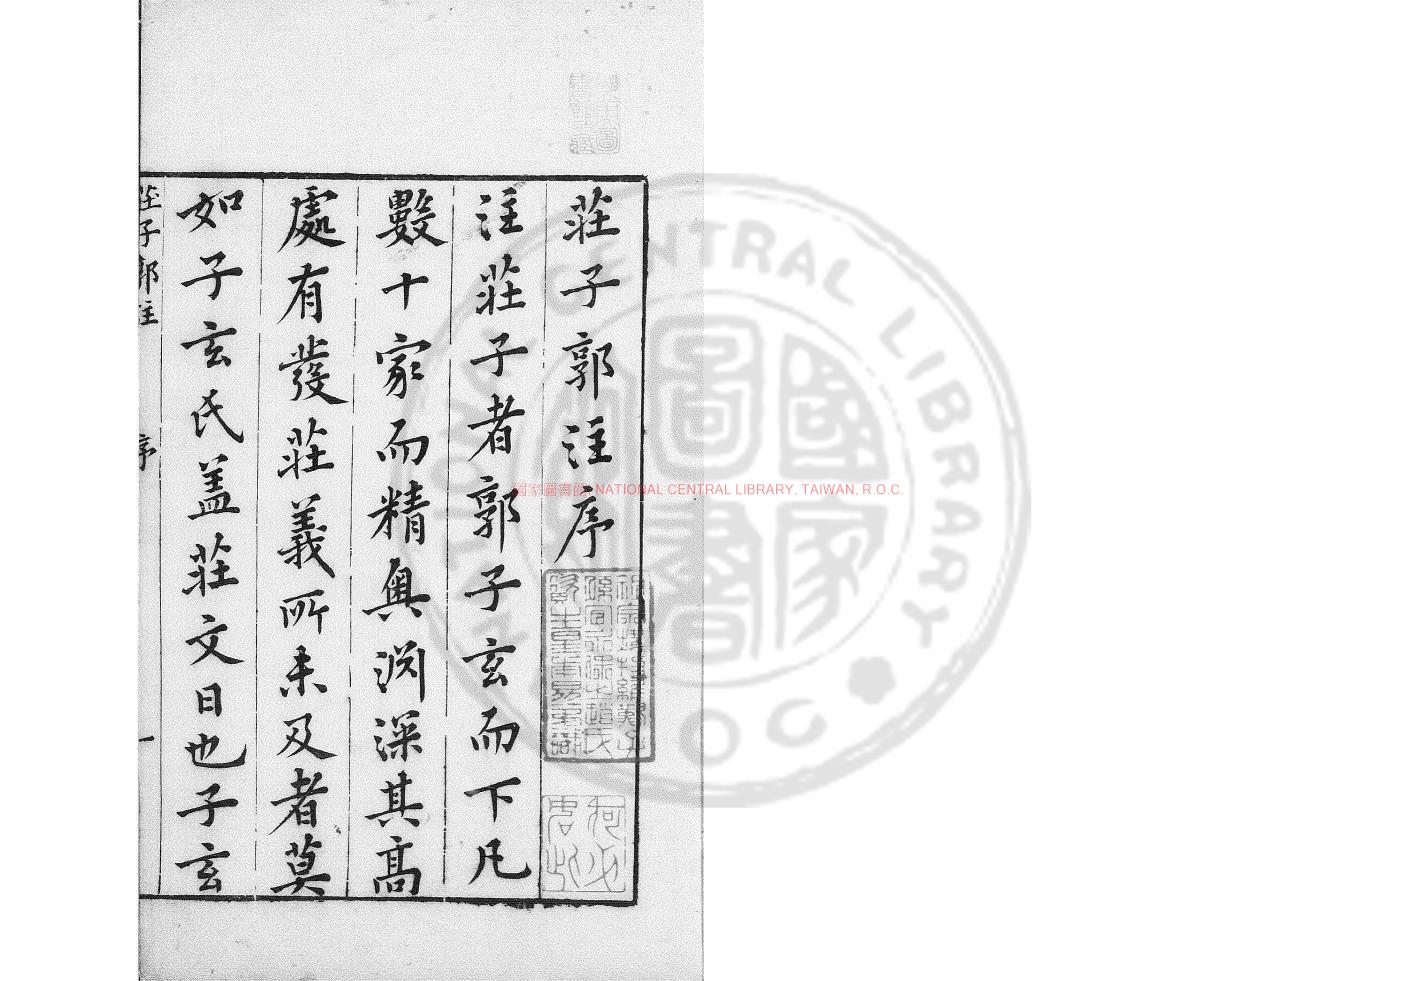 莊子郭注序
注莊子者郭子玄而下凡
數十家而精奧渕深其髙
處有發莊義所未及者莫
如子玄氏盖莊文日也子玄
莊子郭注 序 一
國家圖書館 NATIONAL CENTRAL LIBRARY, TAIWAN, R.O.C.
NATIONAL CENTRAL LIBRARY R.O.C.
國家圖書